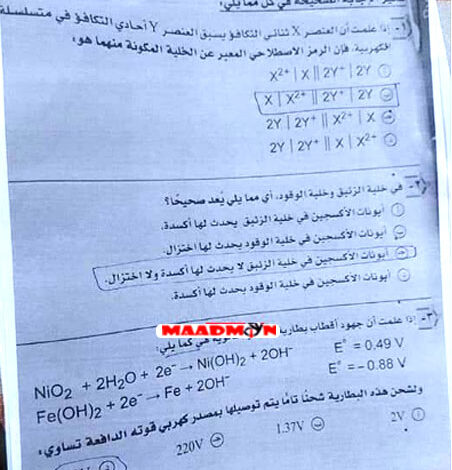 الإجابة الصحيحة في كل مما يلي:
١- إذا علمت أن العنصر X ثنائي التكافؤ يسبق العنصر Y أحادي التكافؤ في متسلسلة
الكهربية، فإن الرمز الاصطلاحي المعبر عن الخلية المكونة منهما هو:
أ X²⁺ | X || 2Y⁺ | 2Y
ب X | X²⁺ || 2Y⁺ | 2Y
ج 2Y | 2Y⁺ || X²⁺ | X
د 2Y | 2Y⁺ || X | X²⁺
٢- في خلية الزئبق وخلية الوقود، أي مما يلي يُعد صحيحًا؟
أ أيونات الأكسجين في خلية الزئبق يحدث لها أكسدة.
ب أيونات الأكسجين في خلية الوقود يحدث لها اختزال.
ج أيونات الأكسجين في خلية الزئبق لا يحدث لها أكسدة ولا اختزال.
د أيونات الأكسجين في خلية الوقود يحدث لها أكسدة.
MAADMOON
٣- إذا علمت أن جهود أقطاب بطارية في كما يلي:
NiO₂ + 2H₂O + 2e⁻ → Ni(OH)₂ + 2OH⁻ E° = 0.49 V
Fe(OH)₂ + 2e⁻ → Fe + 2OH⁻ E° = -0.88 V
ولشحن هذه البطارية شحنًا تامًا يتم توصيلها بمصدر كهربي قوته الدافعة تساوي:
أ 2V ب 1.37V ج 220V